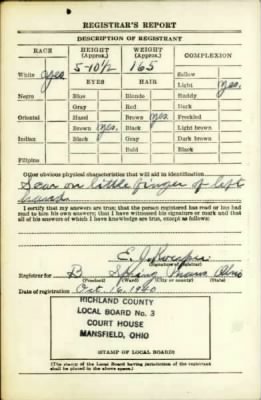 REGISTRAR'S REPORT
DESCRIPTION OF REGISTRANT
RACE HEIGHT (Approx.) WEIGHT (Approx.) COMPLEXION
White Yes 5-10½ 165 Sallow
EYES HAIR Light Yes.
Negro Blue Blonde Ruddy
Gray Red Dark
Oriental Hazel Brown Yes Freckled
Brown Yes. Black Light brown
Indian Black Gray Dark brown
Bald Black
Filipino
Other obvious physical characteristics that will aid in identification
Scar on little finger of left
hand.
I certify that my answers are true; that the person registered has read or has had
read to him his own answers; that I have witnessed his signature or mark and that
all of his answers of which I have knowledge are true, except as follows:
E. J.
(Signature of registrar)
Registrar for B Spring Ohio
(Precinct) (Ward) (City or county) (State)
Date of registration Oct. 16, 1940
RICHLAND COUNTY
LOCAL BOARD No. 3
COURT HOUSE
MANSFIELD, OHIO
(STAMP OF LOCAL BOARD)
(The stamp of the Local Board having jurisdiction of the registrant
shall be placed in the above space.)